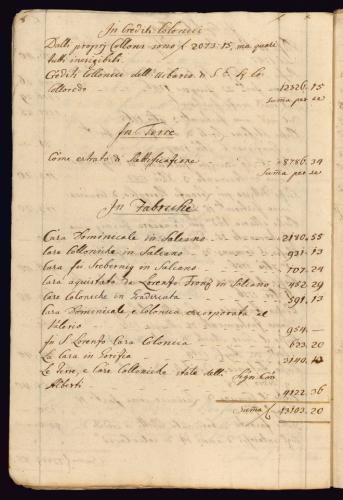 In Crediti Colonici
Dalli proprij Colloni sono f 2073:15, ma quasi
tutti inesigibili.
Crediti Collonici dell' Urbario di S. E. Co:
Colloredo - - 12326.15
Suma per se
In Terre
Come estrato di Stattificatione - - 8786.34
Suma per se
In Fabriche
Casa Dominicale in Salcano - - 2180.55
Case Colloniche in Salcano - - 931.13
Casa fu Siebernig in Salcano - - 707.24
Casa aquistata da Lorenzo in Salcano - 452.29
Case Coloniche in - - 591.13
Casa Dominicale, e Colonica incorporata al
Valerio - - 954.—
fu S. Lorenzo Casa Colonica - - 623.20
La Casa in Gorizia - - 3140.
Le Terre, e Case Colloniche state delli Sign: Con:
Alberti - - 4122.36
Suma f 13103.20